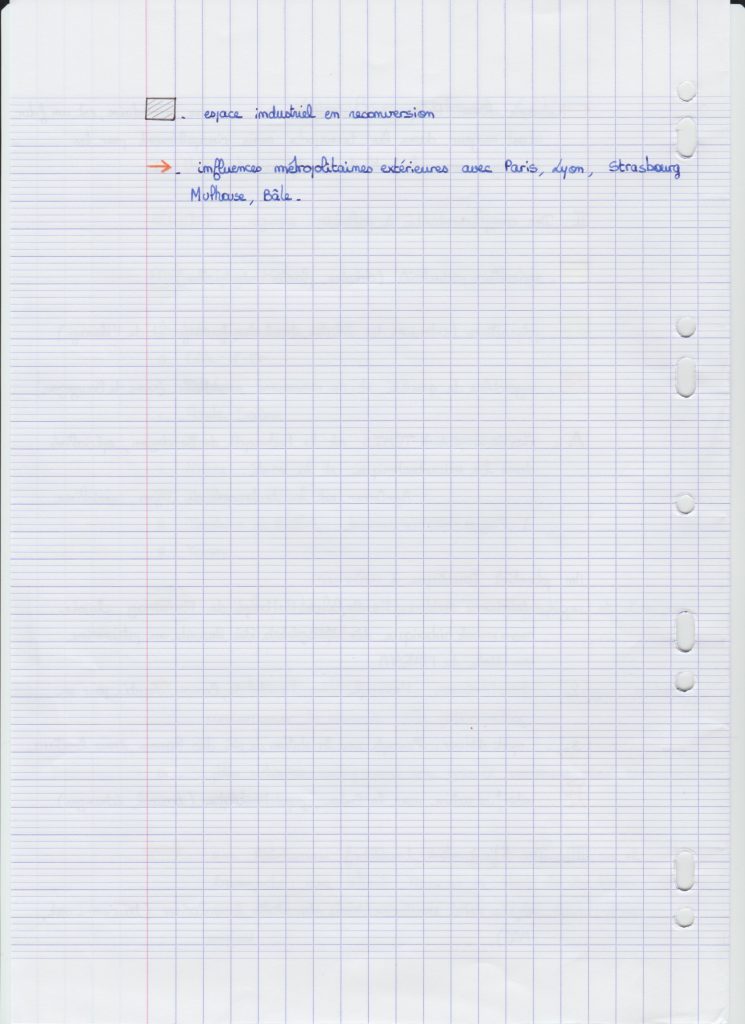 . espace industriel en reconversion
. influences métropolitaines extérieures avec Paris, Lyon, Strasbourg
Mulhouse, Bâle.